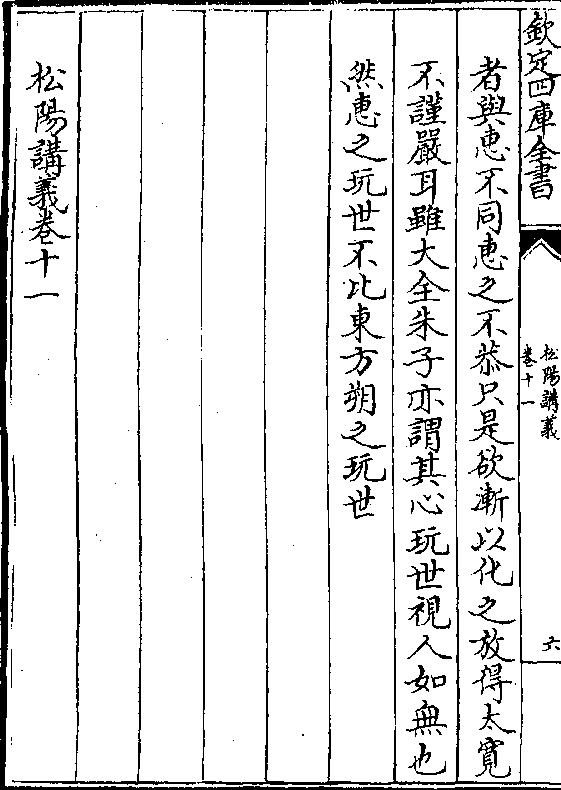 欽定四庫全書
松陽講義
卷十一
六
者與惠不同惠之不恭只是欲漸以化之放得太寬
不謹嚴耳雖大全朱子亦謂其心玩世視人如無也
然惠之玩世不比東方朔之玩世
松陽講義卷十一